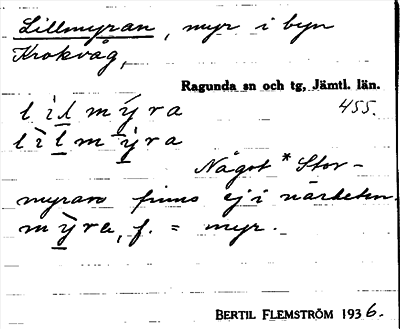 Lillmyran, myr i byn
Krokvåg,
Ragunda sn och tg, Jämtl. län.
lìlmýra 455.
lìlmỳra
Något *Stor-
myran finns ej i närheten.
mỳra, f. = myr.
BERTIL FLEMSTRÖM 1936.